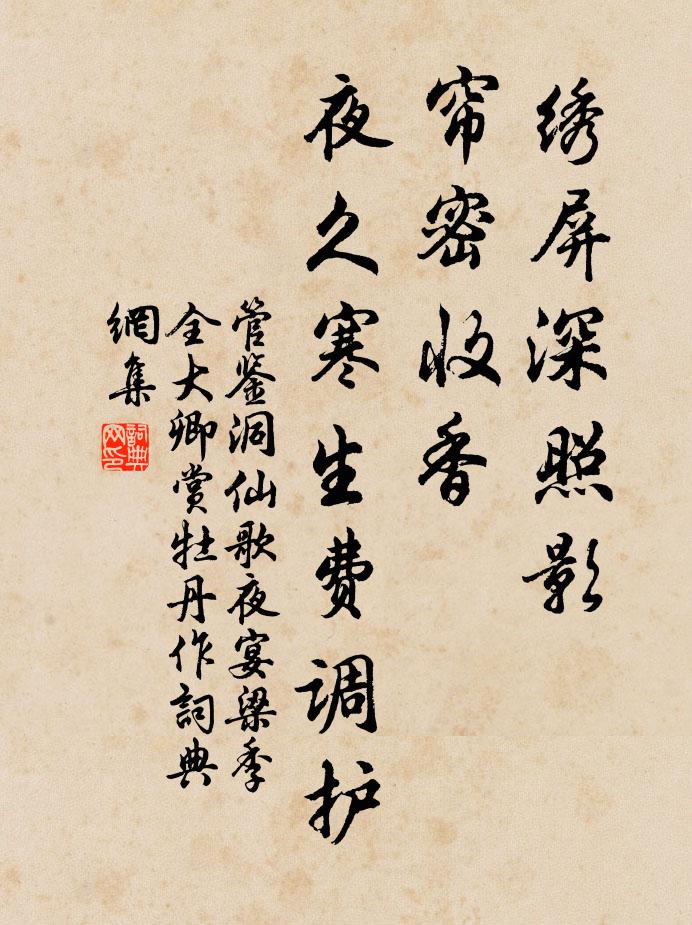 绣屏深照影
帘密收香
夜久寒生费调护
管鉴洞仙歌夜宴梁季
全大卿赏牡丹作詞典
網集
詞典
网印